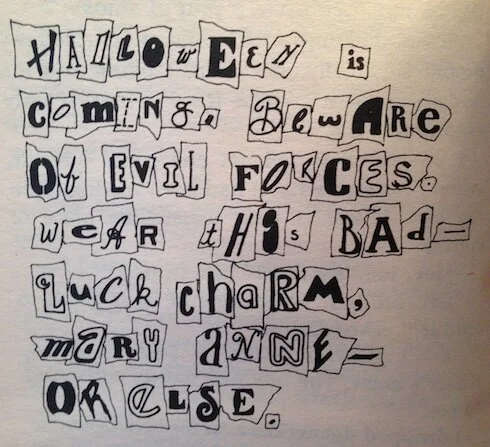 HALLOwEEN is
Coming. BewARe
Of EVIL FORCES.
weAR tHIs BAd-
Luck chaRM,
maRY ANNE-
OR ELSE.